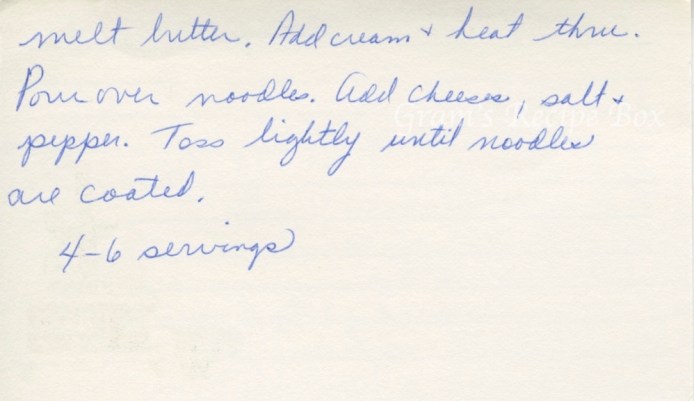 melt butter. Add cream + heat thru.
Pour over noodles. Add cheeses, salt +
Gram's Recipe Box
pepper. Toss lightly until noodles
are coated.
4-6 servings